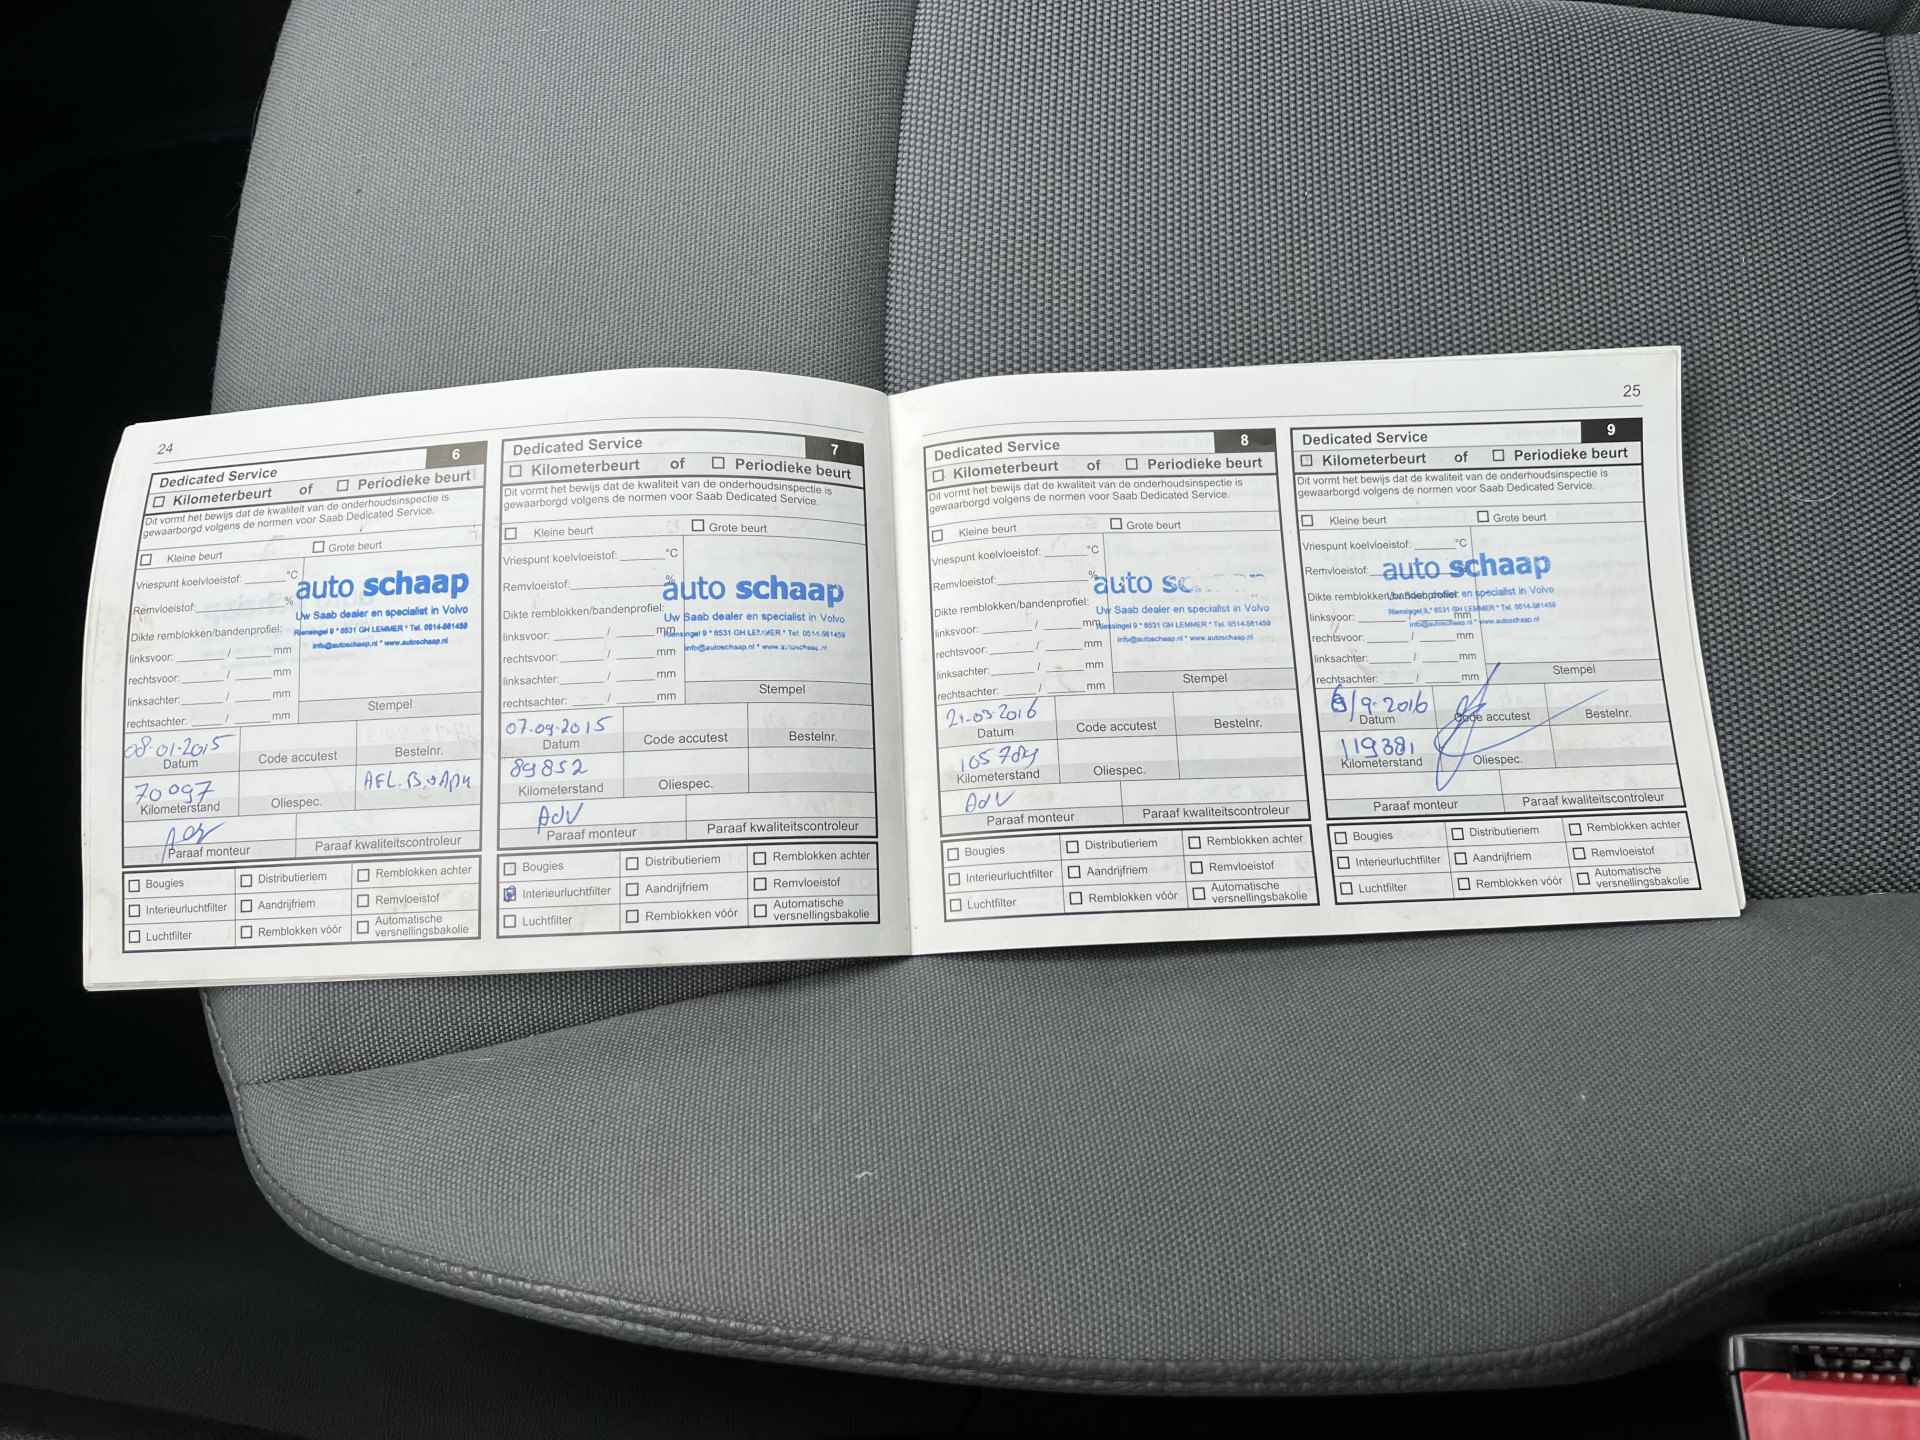 24
Dedicated Service 6
Kilometerbeurt of Periodieke beurt
Dit vormt het bewijs dat de kwaliteit van de onderhoudsinspectie is
gewaarborgd volgens de normen voor Saab Dedicated Service.
Kleine beurt Grote beurt
Vriespunt koelvloeistof: °C
Remvloeistof: %
Dikte remblokken/bandenprofiel:
linksvoor: / mm
rechtsvoor: / mm
linksachter: / mm
rechtsachter: / mm
auto schaap
Uw Saab dealer en specialist in Volvo
Riensingel 9 * 8531 GH LEMMER * Tel. 0514-561459
info@autoschaap.nl * www.autoschaap.nl
Stempel
08-01-2015
Datum Code accutest Bestelnr.
70097
Kilometerstand Oliespec.
Paraaf monteur Paraaf kwaliteitscontroleur
Bougies Distributieriem Remblokken achter
Interieurluchtfilter Aandrijfriem Remvloeistof
Luchtfilter Remblokken vóór Automatische
versnellingsbakolie
Dedicated Service 7
Kilometerbeurt of Periodieke beurt
Dit vormt het bewijs dat de kwaliteit van de onderhoudsinspectie is
gewaarborgd volgens de normen voor Saab Dedicated Service.
Kleine beurt Grote beurt
Vriespunt koelvloeistof: °C
Remvloeistof: %
Dikte remblokken/bandenprofiel:
linksvoor: / mm
rechtsvoor: / mm
linksachter: / mm
rechtsachter: / mm
auto schaap
Uw Saab dealer en specialist in Volvo
Riensingel 9 * 8531 GH LEMMER * Tel. 0514-561459
info@autoschaap.nl * www.autoschaap.nl
Stempel
07-09-2015
Datum Code accutest Bestelnr.
89852
Kilometerstand Oliespec.
AdV
Paraaf monteur Paraaf kwaliteitscontroleur
Bougies Distributieriem Remblokken achter
Interieurluchtfilter Aandrijfriem Remvloeistof
Luchtfilter Remblokken vóór Automatische
versnellingsbakolie
25
Dedicated Service 8
Kilometerbeurt of Periodieke beurt
Dit vormt het bewijs dat de kwaliteit van de onderhoudsinspectie is
gewaarborgd volgens de normen voor Saab Dedicated Service.
Kleine beurt Grote beurt
Vriespunt koelvloeistof: °C
Remvloeistof: %
Dikte remblokken/bandenprofiel:
linksvoor: / mm
rechtsvoor: / mm
linksachter: / mm
rechtsachter: / mm
auto sc
Uw Saab dealer en specialist in Volvo
Riensingel 9 * 8531 GH LEMMER * Tel. 0514-561459
info@autoschaap.nl * www.autoschaap.nl
Stempel
21-03-2016
Datum Code accutest Bestelnr.
105784
Kilometerstand Oliespec.
AdV
Paraaf monteur Paraaf kwaliteitscontroleur
Bougies Distributieriem Remblokken achter
Interieurluchtfilter Aandrijfriem Remvloeistof
Luchtfilter Remblokken vóór Automatische
versnellingsbakolie
Dedicated Service 9
Kilometerbeurt of Periodieke beurt
Dit vormt het bewijs dat de kwaliteit van de onderhoudsinspectie is
gewaarborgd volgens de normen voor Saab Dedicated Service.
Kleine beurt Grote beurt
Vriespunt koelvloeistof: °C
Remvloeistof:
Dikte remblokken/bandenprofiel:
linksvoor: / mm
rechtsvoor: / mm
linksachter: / mm
rechtsachter: / mm
auto schaap
Uw Saab dealer en specialist in Volvo
Riensingel 9 * 8531 GH LEMMER * Tel. 0514-561459
info@autoschaap.nl * www.autoschaap.nl
Stempel
6/9-2016
Datum Code accutest Bestelnr.
119381
Kilometerstand Oliespec.
Paraaf monteur Paraaf kwaliteitscontroleur
Bougies Distributieriem Remblokken achter
Interieurluchtfilter Aandrijfriem Remvloeistof
Luchtfilter Remblokken vóór Automatische
versnellingsbakolie